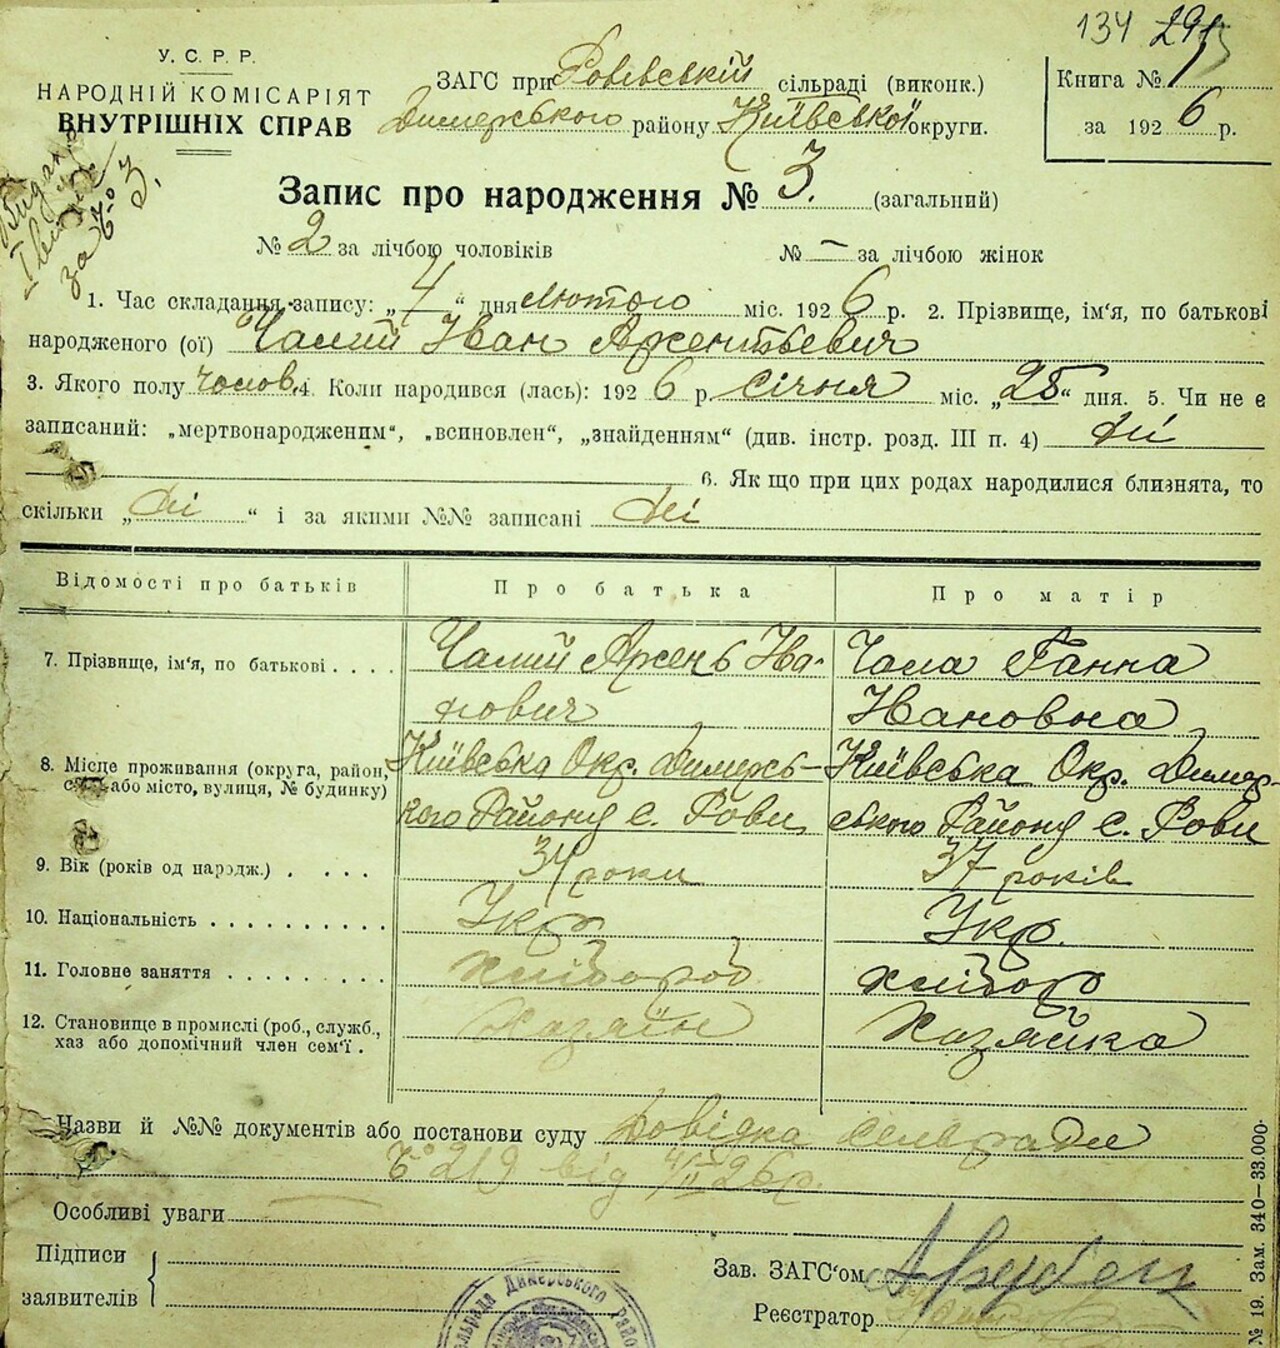 134 29
У. С. Р. Р.
НАРОДНІЙ КОМІСАРІЯТ
ВНУТРІШНІХ СПРАВ
ЗАГС при Ровівській сільраді (виконк.)
Димерського району Київської округи.
Книга №
за 1926 р.
за № 3.
Запис про народження № 3. (загальний)
№ 2 за лічбою чоловіків № — за лічбою жінок
1. Час складання запису: „4“ дня Лютого міс. 1926 р. 2. Прізвище, ім‘я, по батькові
народженого (ої) Чалий Іван Арсентьевич
3. Якого полу чолов. 4. Коли народився (лась): 1926 р. Січня міс. „25“ дня. 5. Чи не є
записаний: „мертвонародженим“, „всиновлен“, „знайденням“ (див. інстр. розд. III п. 4) Ні
6. Як що при цих родах народилися близнята, то
скільки „Ні“ і за якими №№ записані Ні
Відомості про батьків Про батька Про матір
7. Прізвище, ім‘я, по батькові . . . . Чалий Арсень Іва- Чала Ганна
нович Івановна
8. Місце проживання (округа, район, Київська Окр. Димерсь- Київська Окр. Димер-
село або місто, вулиця, № будинку) кого Району с. Рови ського Району с. Рови
9. Вік (років од народж.) . . . . 34 роки 37 років
10. Національність . . . . . . . . . . Укр. Укр.
11. Головне заняття . . . . . . . . хлібороб хлібор
12. Становище в промислі (роб., служб., Хазяїн Хазяйка
хаз або допомічний член сем‘ї .
Назви й №№ документів або постанови суду Довідка Сельради
№ 219 від 4/II 26 р.
Особливі уваги
Підписи
заявителів
Зав. ЗАГС‘ом
Реєстратор
Димерського
№ 19. Зам. 340—33.000-